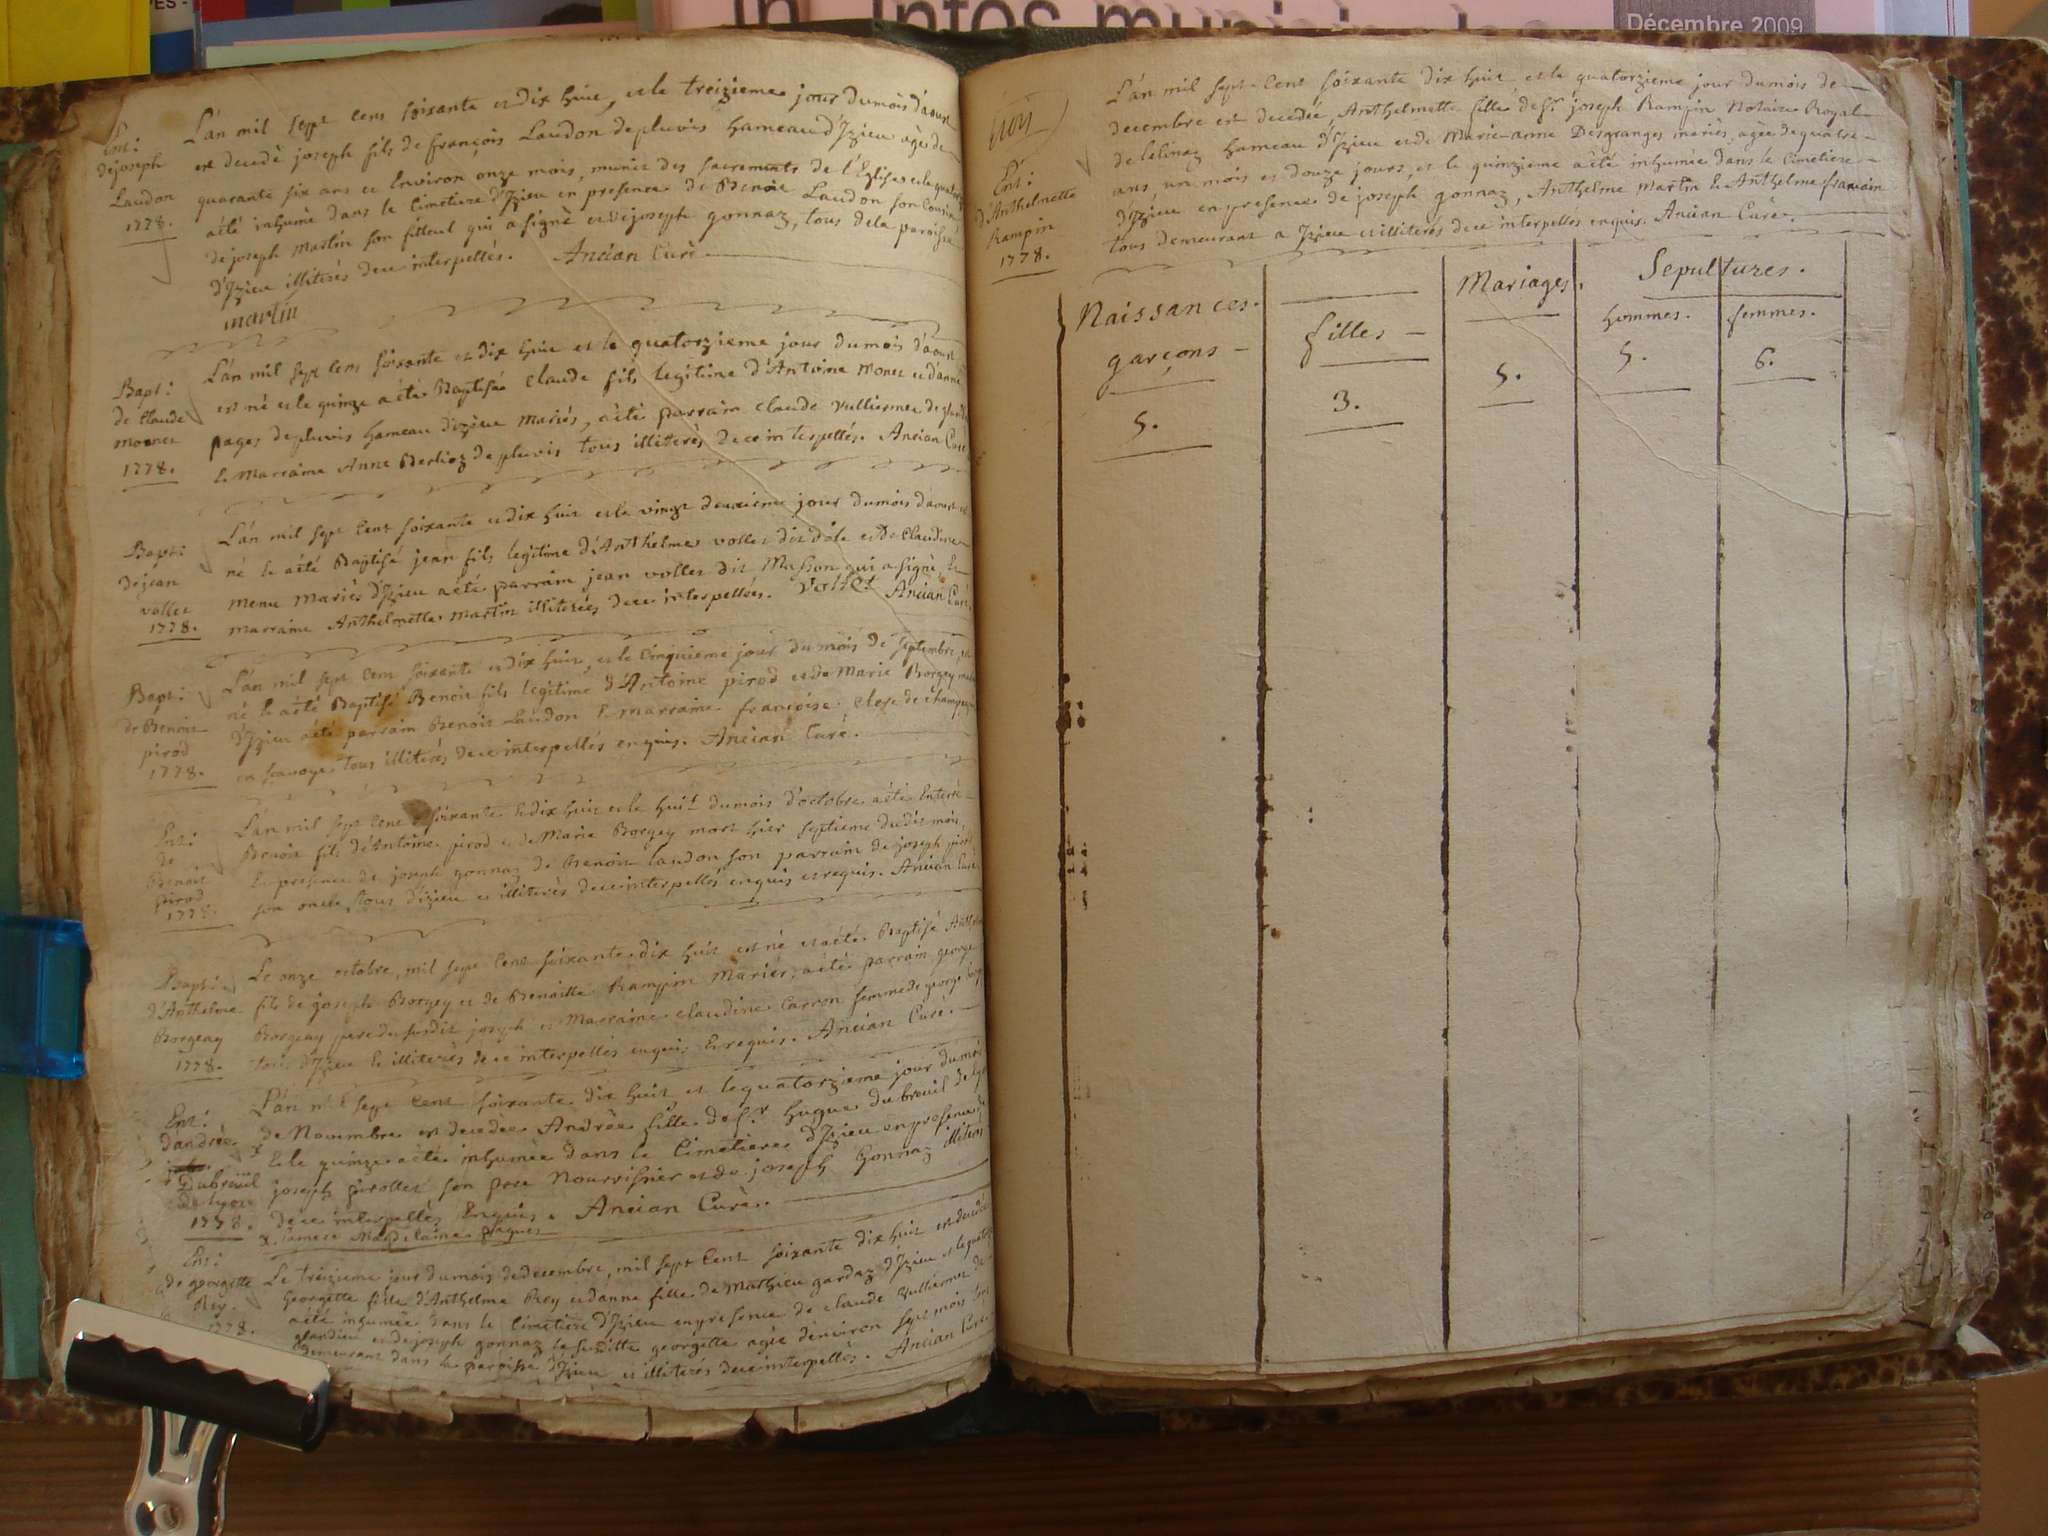 Infos municipales
Décembre 2009
Ent:
de joseph
Laudon
1778.
L'án mil sept cens soixante et dix huit, et le treizieme jour du mois d'aoust
est decedé joseph fils de françois Laudon de pluvis hameau d'Izieu agè de
quarante six ans et Environ onze mois, munis des sacrements de l'Eglise et le
aété inhumé dans le Cimetiere d'Izieu en presence de Benoit Laudon son Cousin
de joseph Martin son filleul qui a signé et de joseph gonnaz, tous de la paroisse
d'Izieu illiterés de ce interpellés. Ancian Curé
martin
Bapt:
de Claude
monet
1778.
L'án mil sept cens soixante et dix huit et le quatorzieme jour du mois d'aoust
est né et le quinze aété Baptisé Claude fils legitime d'Antoine Monet et d'anne
pages de pluvis hameau d'izieu Mariés, aété parrain Claude Vulliermet de
& Marraine Anne Berlioz de pluvis tous illiterés de ce interpellés. Ancian Curé
Bapt:
de jean
vollet
1778.
L'án mil sept cens soixante et dix huit et le vingt deuxieme jour du mois d'aoust est
né & aété Baptisé jean fils legitime d'Anthelme vollet dit et de Claudine
menu Mariés d'Izieu aété parrain jean vollet dit Masson qui a signé, &
marraine Anthelmette Martin illiterées de ce interpellées. Vollet Ancian Curé.
Bapt:
de Benoit
pirod
1778.
L'án mil sept cens soixante et dix huit, et le Cinquieme jour du mois de septembre, est
né & aété Baptisé Benoit fils legitime d'Antoine pirod et de Marie Borgey
d'Izieu aété parrain Benoit Laudon & marraine françoise de Champagne
en savoye tous illiterés de ce interpellés enquis. Ancian Curé.
Ent:
de
Benoit
pirod
1778.
L'án mil sept cens soixante & dix huit et le huit du mois d'octobre aété Enterré
Benoit fils d'Antoine pirod et de Marie Borgey mort hier septieme dudit mois,
En presence de joseph gonnaz de Benoit Laudon son parrain de joseph pirod
son oncle tous d'izieu et illiterés de ce interpellés enquis et requis. Ancian Curé
Bapt:
d'Anthelme
Borgeay
1778.
Le onze octobre, mil sept cens soixante dix huit est né et aété Baptisé
fils de joseph Borgey et de Benoitte Rampin Mariés, aété parrain george
Borgeay pere du susdit joseph et Marraine Claudine Carron femme de george
tous d'Izieu & illiterés de ce interpellés enquis & requis. Ancian Curé.
Ent:
d'andrée
Dubreuil
de lyon
1778.
L'án mil sept cens soixante dix huit et le quatorzieme jour du mois
de Novembre est decedée Andrée fille de Sr. hugue dubreuil de lyon x
& le quinze aété inhumée dans le Cimetiere d'Izieu en presence de
joseph pirollet son pere Nourrisier et de joseph Gonnaz illiterés
de ce interpellés Enquis. Ancian Curé.
x Magdelaine pagues
Ent:
de georgette
Rey.
1778.
Le treizieme jour du mois de decembre, mil sept Cent soixante dix huit est decedée
Georgette fille d'Anthelme Rey et d'anne fille de Mathieu gardaz d'Izieu et le
aété inhumée dans le Cimetiere d'Izieu en presence de Claude Vulliermet de
glandieu et de joseph gonnaz la susditte georgette agée d'environ sept mois
demeurant dans la paroisse d'Izieu et illiterés de ce interpellés. Ancian Curé.
Ent:
d'Anthelmette
Rampin
1778.
L'án mil sept-Cent soixante dix huit et le quatorzieme jour du mois de
decembre est decedée, Anthelmette fille de Sr. joseph Rampin Notaire Royal
de lelinaz hameau d'Izieu et de Marie-anne Desgranges mariés, agée de quatre
ans, un mois et douze jours, et le quinzieme aété inhumée dans le Cimetiere
d'Izieu en presence de joseph gonnaz, Anthelme Martin & Anthelme françain
tous demeurant a Izieu et illiterés de ce interpellés enquis. Ancian Curé.
Naissances.
Mariages.
Sepultures.
garçons
filles
hommes.
femmes.
5.
3.
5.
5.
6.